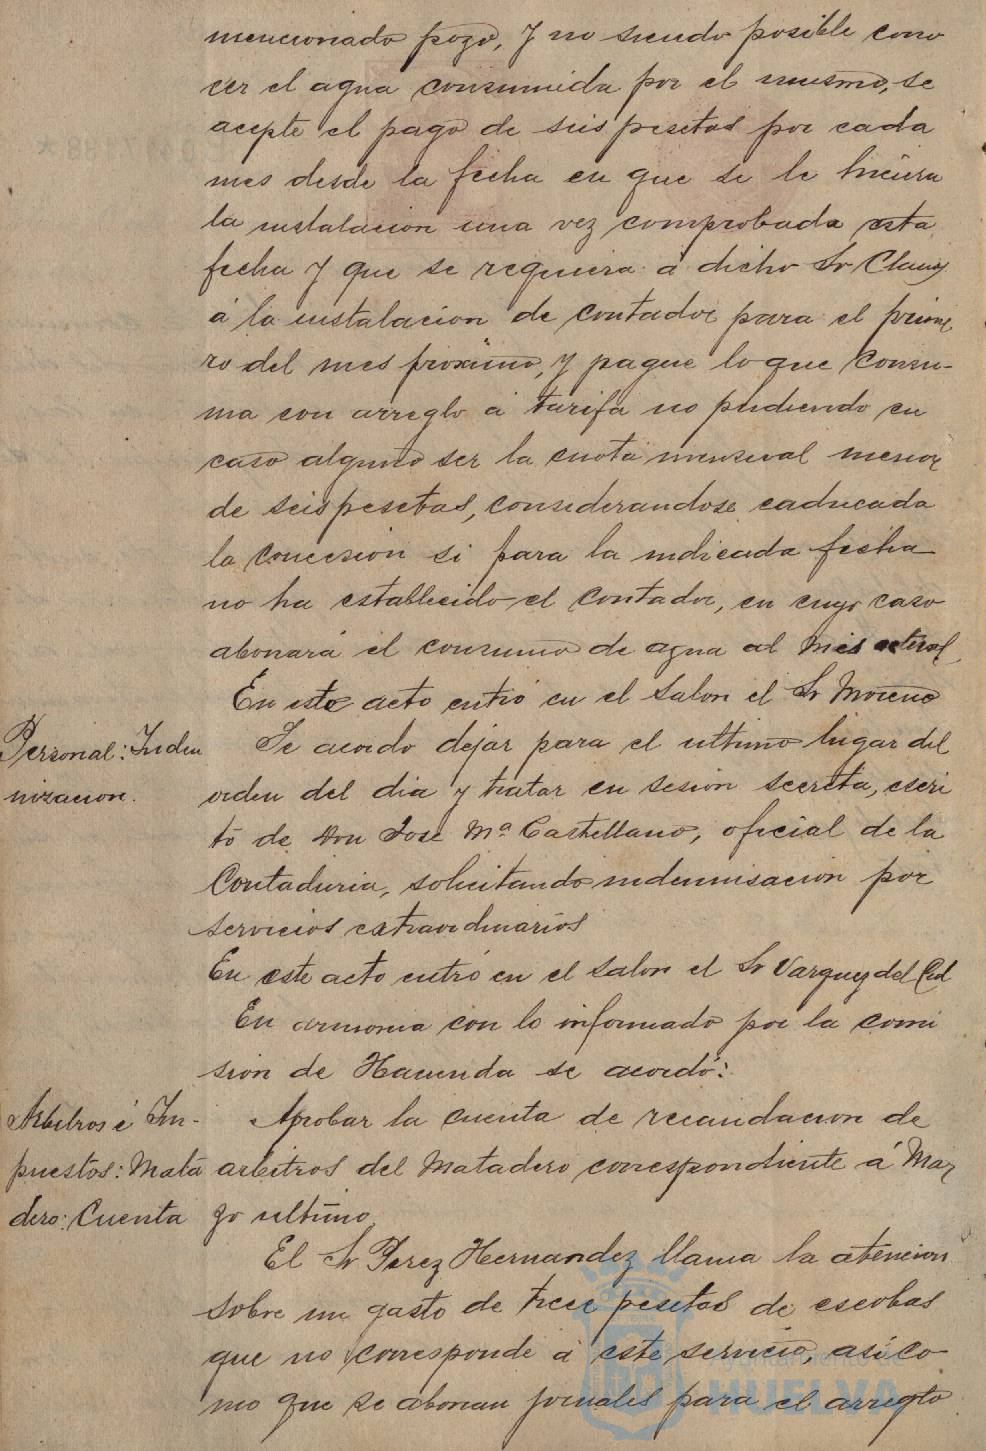 mencionado pozo, y no siendo posible cono
cer el agua consumida por el mismo, se
acepte el pago de seis pesetas por cada
mes desde la fecha en que se le hiciera
la instalacion una vez comprobada esta
fecha y que se requiera á dicho Sr
á la instalacion de contador para el prime
ro del mes próximo, y pague lo que consu-
ma con arreglo á tarifa no pudiendo en
caso alguno ser la cuota mensual menor
de seis pesetas, considerandose caducada
la concesion si para la indicada fecha
no ha establecido el contador, en cuyo caso
abonará el consumo de agua al mes actual
En este acto entró en el salon el Sr Moreno
Personal: Indem
nizacion.
Se acordo dejar para el ultimo lugar del
orden del dia y tratar en sesion secreta, escri
to de Don José Mª Castellano, oficial de la
Contaduria, solicitando indemnisacion por
servicios extraordinarios
En este acto entró en el salon el Sr Vazquez del Cid
En armonia con lo informado por la comi
sion de Hacienda se acordó:
Arbitros é Im-
puestos: Mata
dero: Cuenta
Aprobar la cuenta de recaudacion de
arbitros del Matadero correspondiente á Mar
zo ultimo
El Sr Perez Hernandez llama la atencion
sobre un gasto de trece pesetas de escobas
que no corresponde á este servicio, asi co
mo que se abonan jornales para el arreglo
Ayuntamiento de
HUELVA